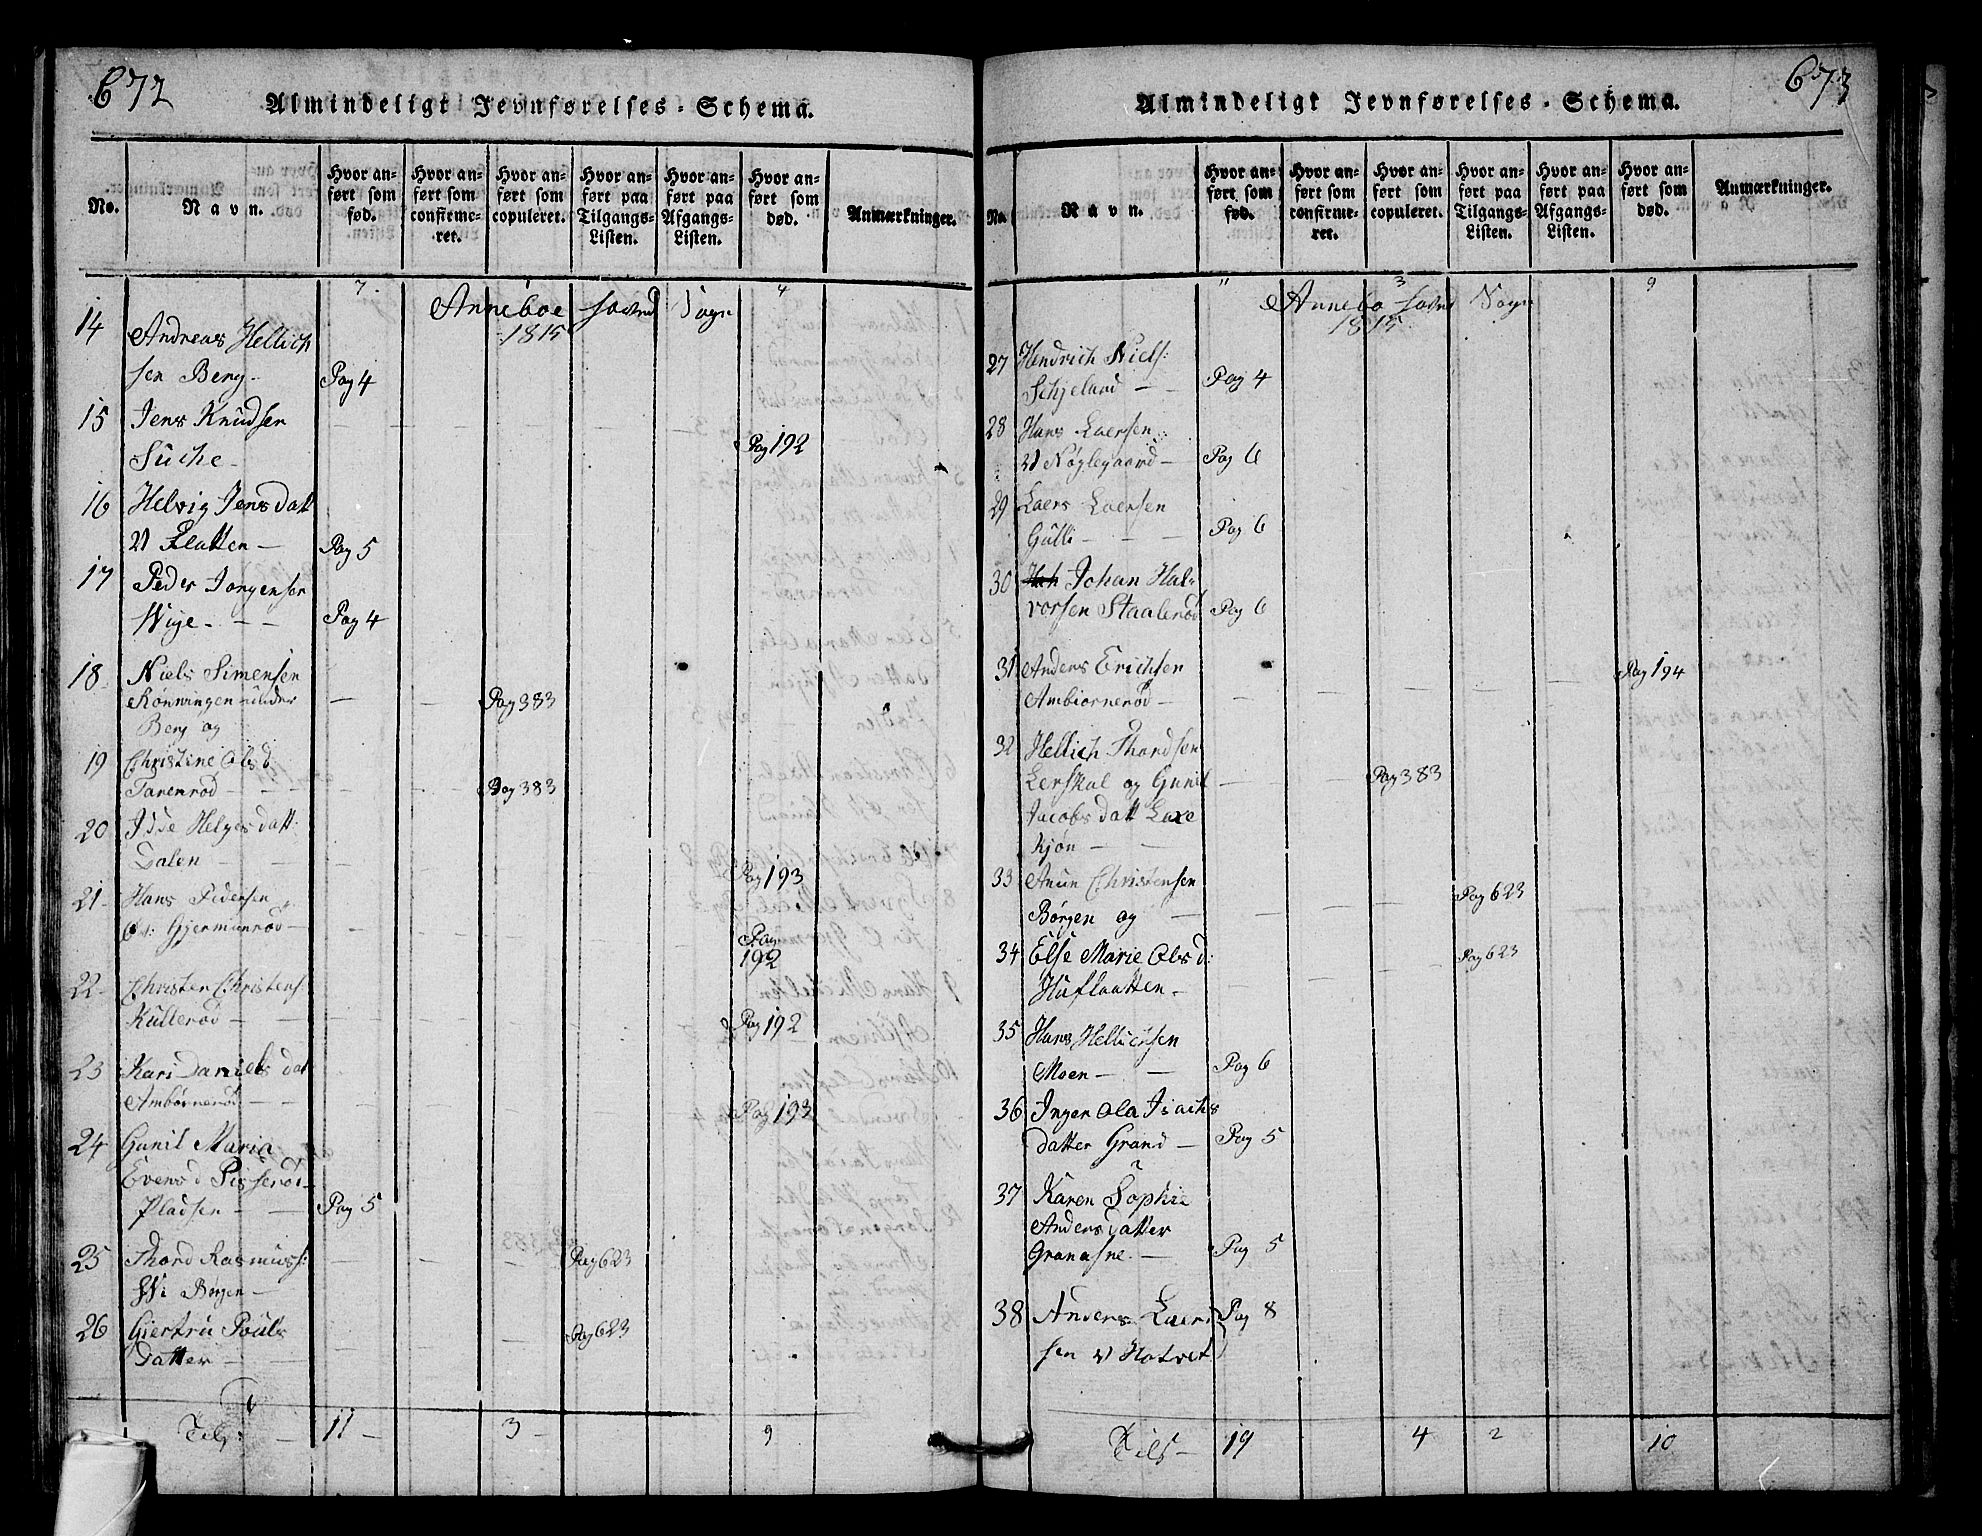 672
Almindeligt Jevnførelses-Schema.
No.
Navn.
Hvor an-
ført som
fød.
Hvor an-
ført som
confirme-
ret.
Hvor an-
ført som
copuleret.
Hvor an-
ført paa
Tilgangs-
Listen.
Hvor an-
ført paa
Afgangs-
Listen.
Hvor an-
ført som
død.
Anmærkninger.
7. 4
Anneboe hoved Sogn
1815
14 Andreas Hellich
sen Berg - Pag 4
15 Jens Knudsen
Suche - Pag 192
16 Helvig Jensdatt
V Flatten - Pag 5
17 Peder Jorgensen
Wiye - - - Pag 4
18 Niels Simensen
Rønningen under - Pag 383
Berg og
19 Christine Olsd
Tanemrød - - - Pag 383
20 Idde Helgesdatt:
Dalen - Pag 193
21 Hans Pedersen
Gjermunrød - Pag
192
22 Christen Christens
Kullerød - Pag 192
23 Kari Daniels dat
Ambørnerød - - Pag 193
24 Gunil Maria
Evensd Pisserød-
Pladsen - - Pag 5
25 Thord Rasmuss: Pag 623
Wi Børgen -
26 Giertru Pouls Pag 623
Datter -
Tils: - 11 - 3 - 9
673
Almindeligt Jevnførelses-Schema.
No.
Navn.
Hvor an-
ført som
fød.
Hvor an-
ført som
confirme-
ret.
Hvor an-
ført som
copuleret.
Hvor an-
ført paa
Tilgangs-
Listen.
Hvor an-
ført paa
Afgangs-
Listen.
Hvor an-
ført som
død.
Anmærkninger.
11 3 9
Annebo hoved Sogn
1815.
27 Hendrich Niels:
Schjelland - - Pag 4
28 Hans Laersen
V Nøglegaard - Pag 6
29 Laers Laersen
Gulli - - - Pag 6
30 Johan Hal-
vorsen Staalerød Pag 6
31 Anders Erichsen Pag 194
Ambiørnerød -
32 Hellich Thordsen
Lerskal og Gunil - Pag 383
Jacobsdatt Laxe
kjøn - -
33 Anun Christensen Pag 623
Børgen og -
34 Else Marie Olsd: Pag 623
Huflaatten -
35 Hans Hellichsen
Moen - - Pag 6
36 Inger Ola Isachs
datter Grand - Pag 5
37 Karen Sophie
Andersdatter
Granasne - Pag 5
38 Anders Laer Pag 8
sen V Hotvet
Tils - 19 4 2 10